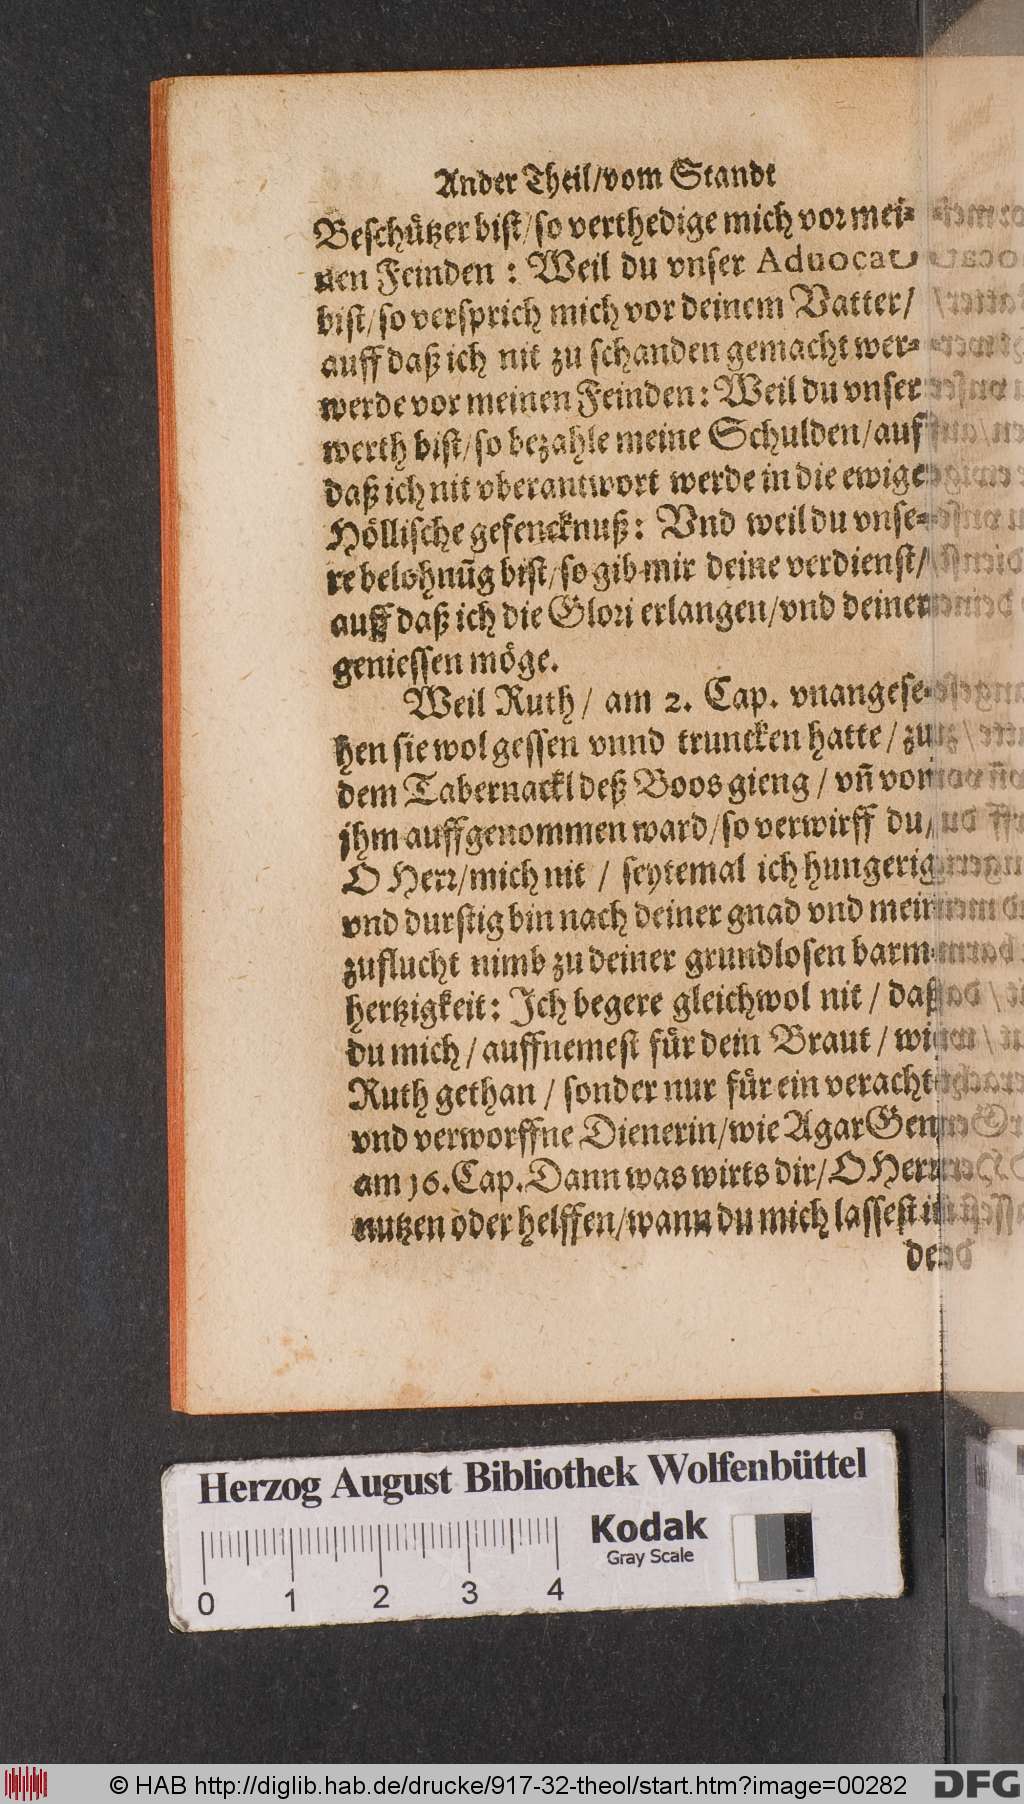 Ander Theil/vom Standt
Beschützer bist/so verthedige mich vor mei-
nen Feinden : Weil du vnser Aduocat
bist/so versprich mich vor deinem Vatter/
auff daß ich nit zu schanden gemacht wer-
werde vor meinen Feinden: Weil du vnser
werth bist/so bezahle meine Schulden/auf
daß ich nit vberantwort werde in die ewige
Höllische gefencknuß: Vnd weil du vnse-
re belohnũg bist/so gib mir deine verdienst/
auff daß ich die Glori erlangen/vnd deiner
geniessen möge.
Weil Ruth/ am 2. Cap. vnangese-
hen sie wol gessen vnnd truncken hatte/zu
dem Tabernackl deß Boos gieng / vñ von
jhm auffgenommen ward/so verwirff du/
O Herr/mich nit / seytemal ich hungerig
vnd durstig bin nach deiner gnad vnd mein
zuflucht nimb zu deiner grundlosen barm-
hertzigkeit: Jch begere gleichwol nit / daß
du mich / auffnemest für dein Braut / wie
Ruth gethan / sonder nur für ein veracht
vnd verworffne Dienerin/wie Agar Gen
am 16. Cap. Dann was wirts dir/O Herr
nutzen oder helffen/wann du mich lassest in
den
Herzog August Bibliothek Wolfenbüttel
Kodak
Gray Scale
0 1 2 3 4
© HAB http://diglib.hab.de/drucke/917-32-theol/start.htm?image=00282
DFG